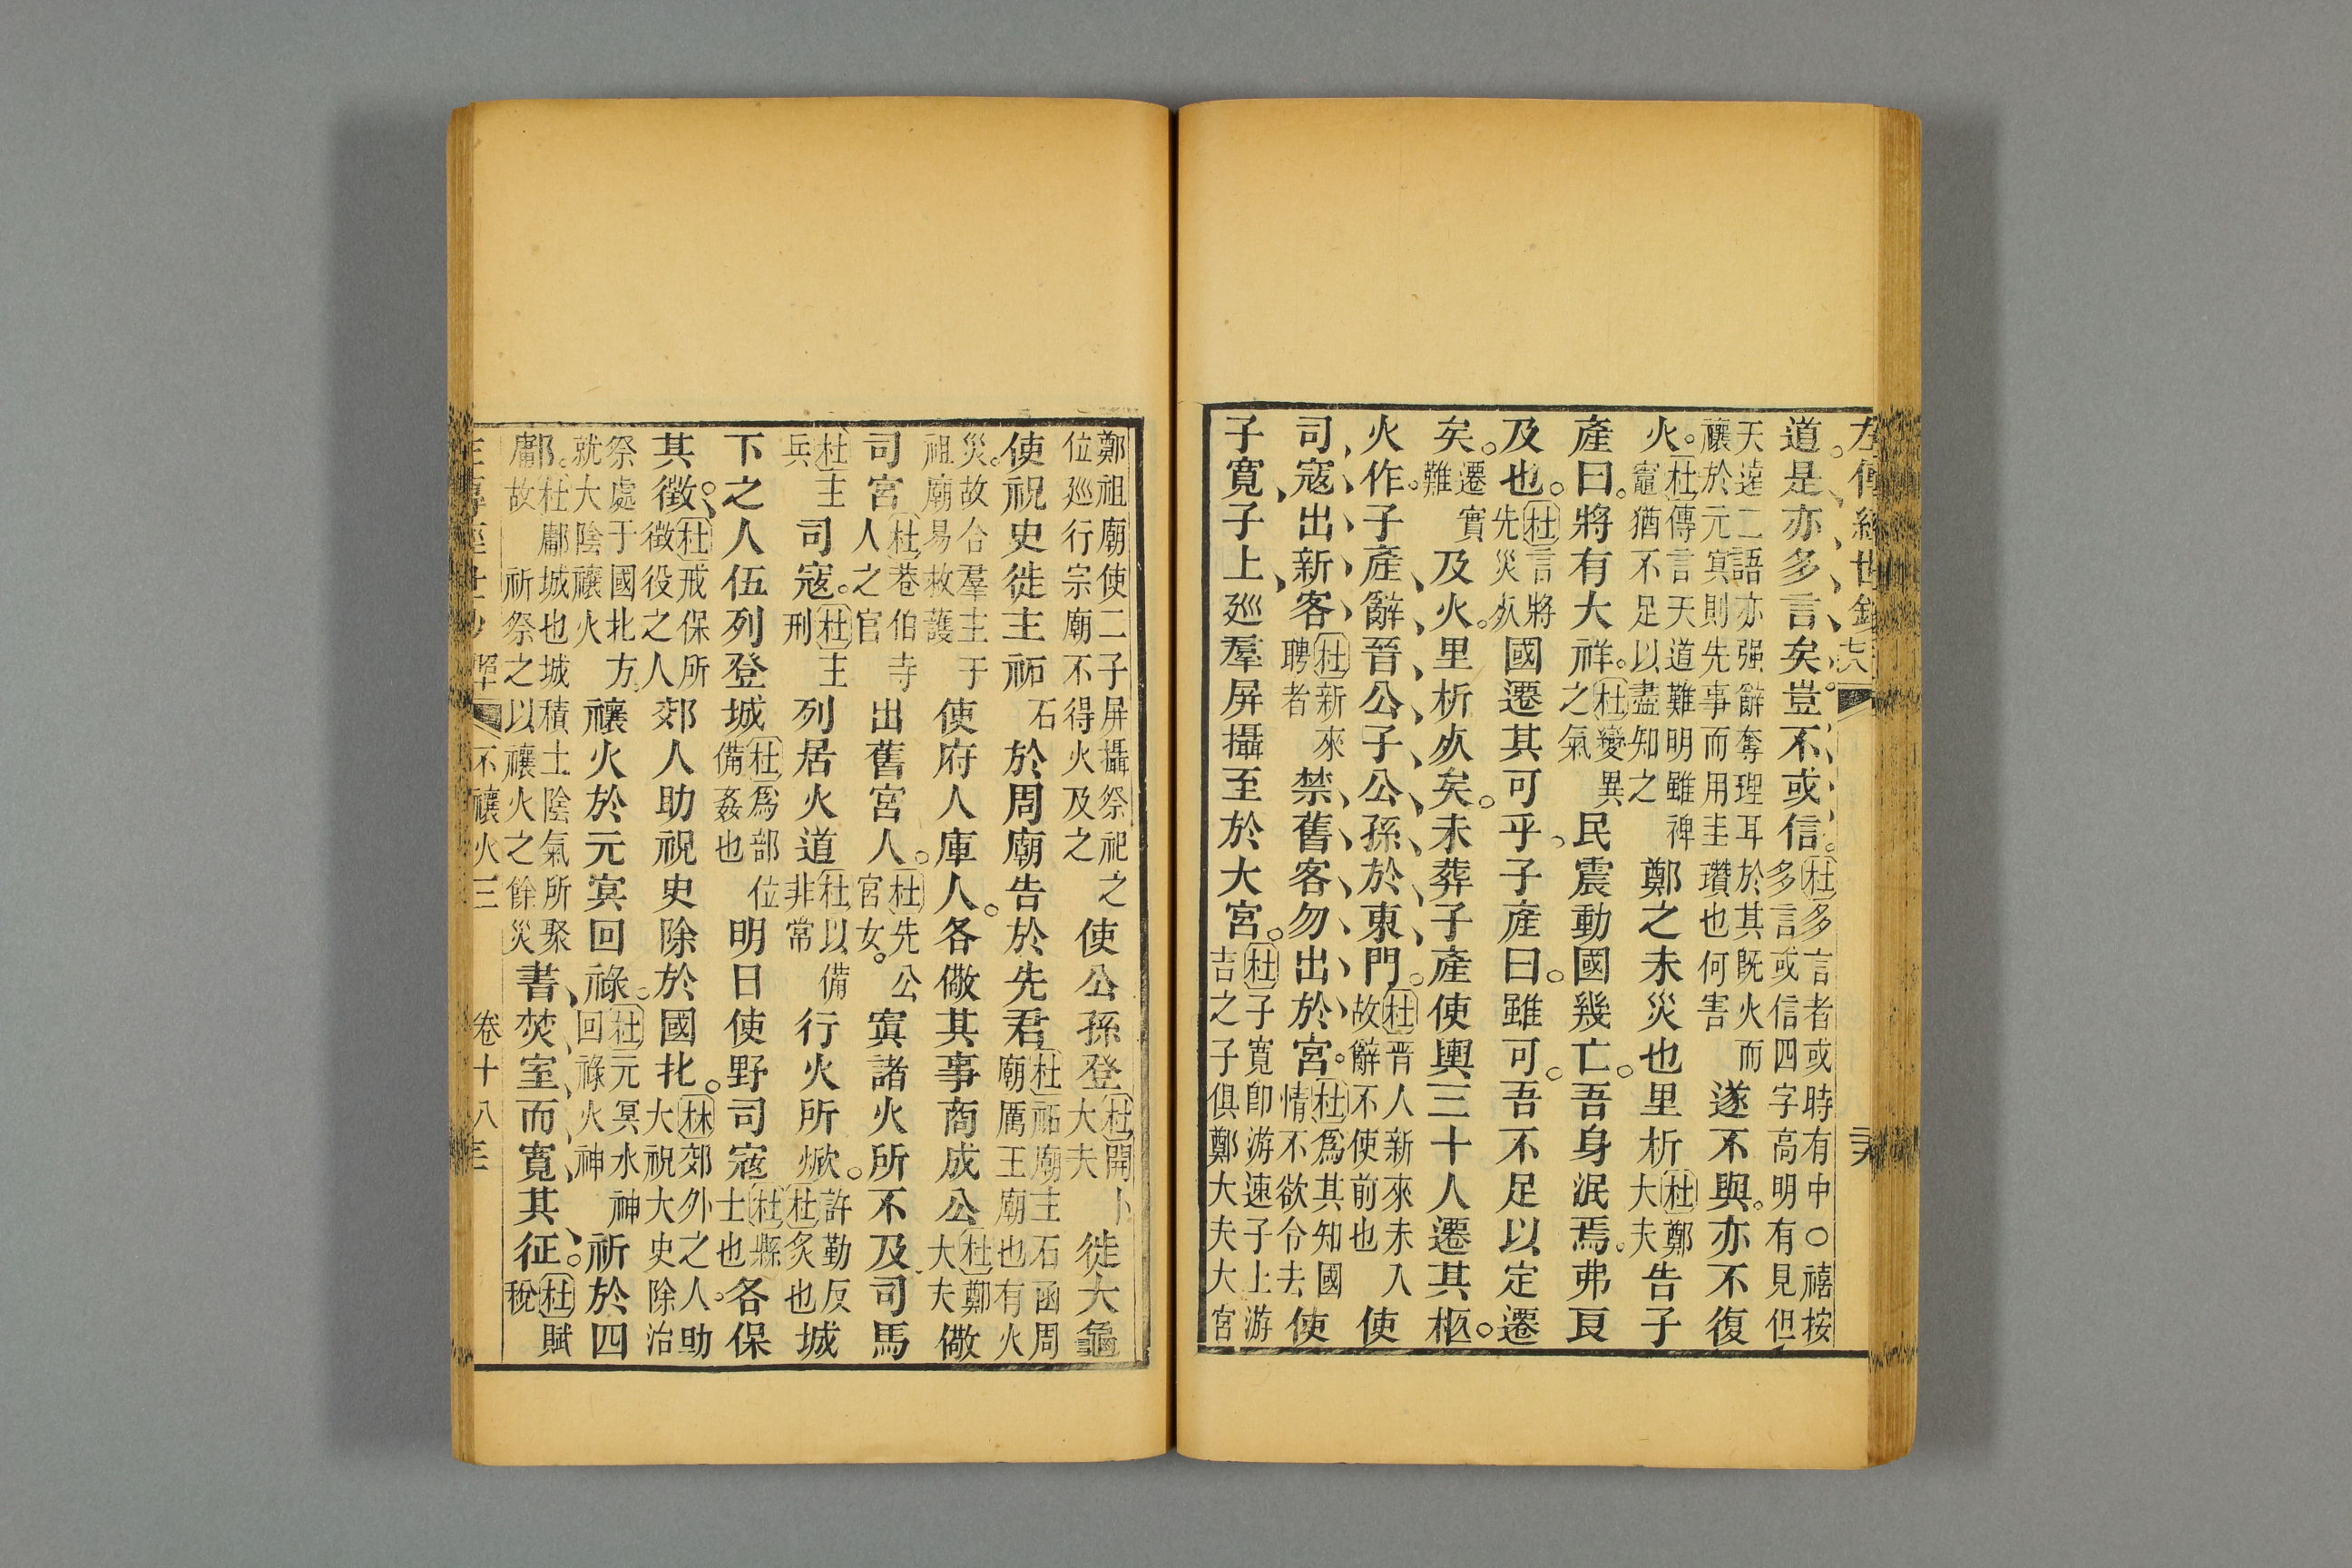 左傳經世鈔
道。是亦多言矣。豈不或信。杜多言者或時有中○禧按多言或信四字高明有見但
天遠二語亦强辭奪理耳於其既火而禳於元冥則先事而用圭瓚也何害遂不與。亦不復
火。杜傳言天道難明雖裨竈猶不足以盡知之鄭之未災也里析杜鄭大夫告子
產曰。將有大祥。杜變異之氣民震動國幾亡。吾身泯焉。弗良
及也。杜言將先災𣦸國遷其可乎。子產曰。雖可。吾不足以定遷
矣。遷實難及火。里析𣦸矣。未葬子產使輿三十人遷其柩。
火作。子產辭晉公子公孫於東門。杜晉人新來未入故辭不使前也使
司寇出新客杜新來聘者禁舊客勿出於宮。杜爲其知國情不欲令去使
子寬子上廵羣屏攝至於大宮。杜子寬卽游速子上游吉之子俱鄭大夫大宮
鄭祖廟使二子屏攝祭祀之位廵行宗廟不得火及之使公孫登杜開卜大夫徙大龜
使祝史徙主祏石於周廟告於先君杜祏廟主石函周廟厲王廟也有火
災。故合羣主于祖廟易救護使府人庫人。各儆其事商成公杜鄭大夫儆
司宮杜巷伯寺人之官出舊宮人。杜先公宮女。寘諸火所不及司馬
杜主兵司寇。杜主刑列居火道杜以備非常行火所焮。許勤反杜炙也城
下之人伍列登城杜爲部位備姦也明日使野司寇杜縣士也各保
其徵。杜戒保所徵役之人郊人助祝史除於國北。林郊外之人。助大祝大史除治
祭處于國北方就大陰禳火禳火於元冥回祿。杜元冥水神回祿火神祈於四
鄘。杜鄘城也城積土陰氣所聚庸故祈祭之以禳火之餘災書焚室而寬其征。杜賦稅
不禳火三 卷十八